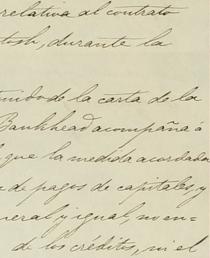 relativa al contrato
tosh, durante la
tenido de la carta de la
Bankhead acompaña á
que la medida acordada
de pagos de capitales, y
neral y igual, ni en=
de los créditos, ni el